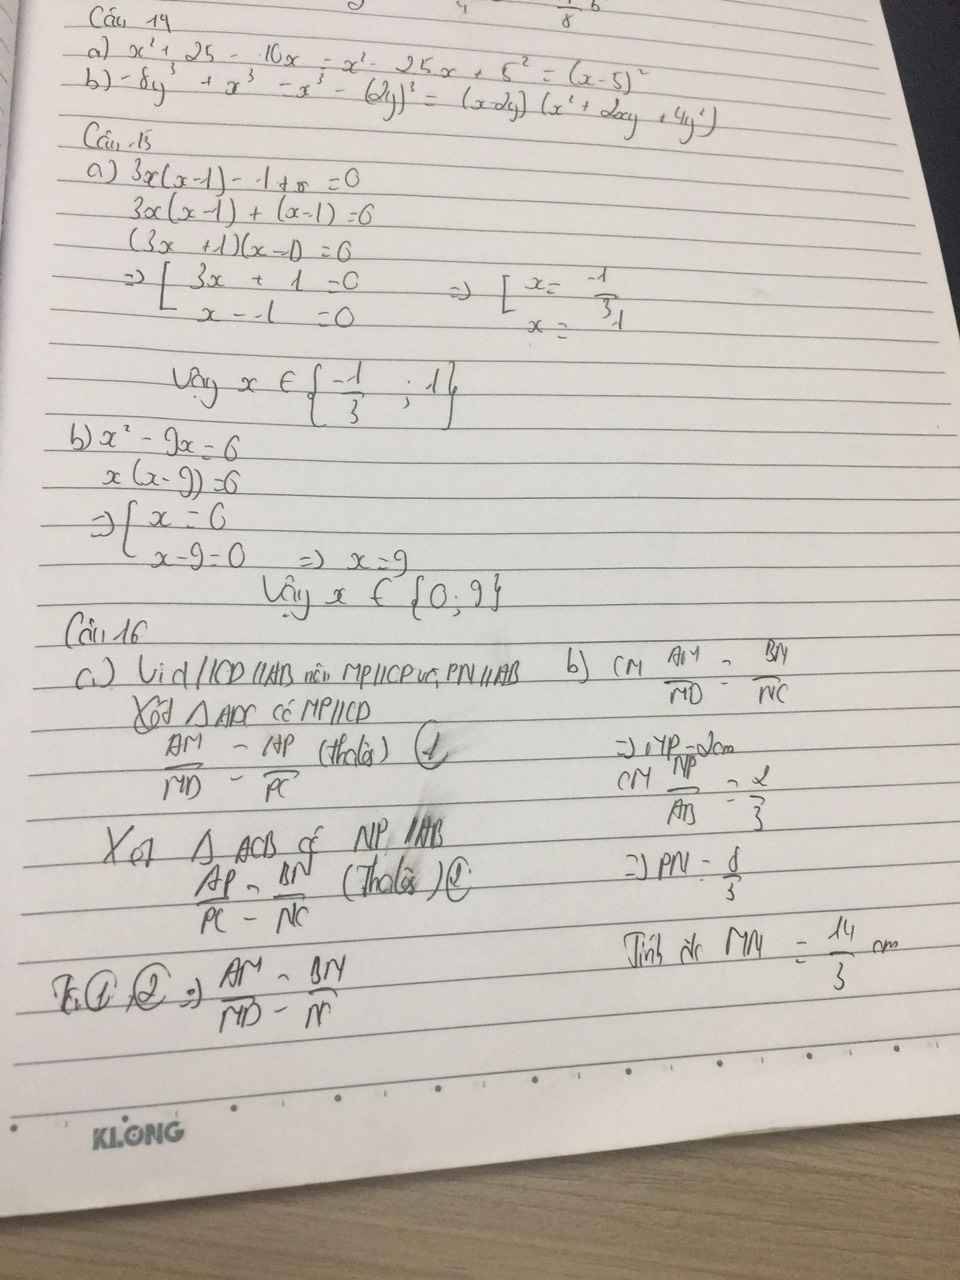 Câu 14
a) x² + 25 - 10x = x² - 25x + 5² = (x-5)²
b) -8y³ + x³ = x³ - (2y)³ = (x-2y)(x² + 2xy + 4y²)
Câu 15
a) 3x(x-1) - 1 + x = 0
3x(x-1) + (x-1) = 0
(3x + 1)(x-1) = 0
=> [ 3x + 1 = 0 => [ x = -1/3
x - 1 = 0 x = 1
Vậy x ∈ {-1/3 ; 1}
b) x² - 9x = 0
x(x-9) = 0
=> [ x = 0
x-9=0 => x=9
Vậy x ∈ {0; 9}
Câu 16
a) Vì d//CD//AB nên MP//CP và PN//AB
Xét Δ ADC có MP//CD
AM/MD = AP/PC (Thalès) ①
Xét Δ ACB có NP //AB
AP/PC = BN/NC (Thalès) ②
Từ ①, ② => AM/MD = BN/N
b) CM AM/MD = BN/NC
=> MP = 2cm
CM NP/AB = 2/3
=> PN = 8/3
Tính đc MN = 14/3 cm
KLONG